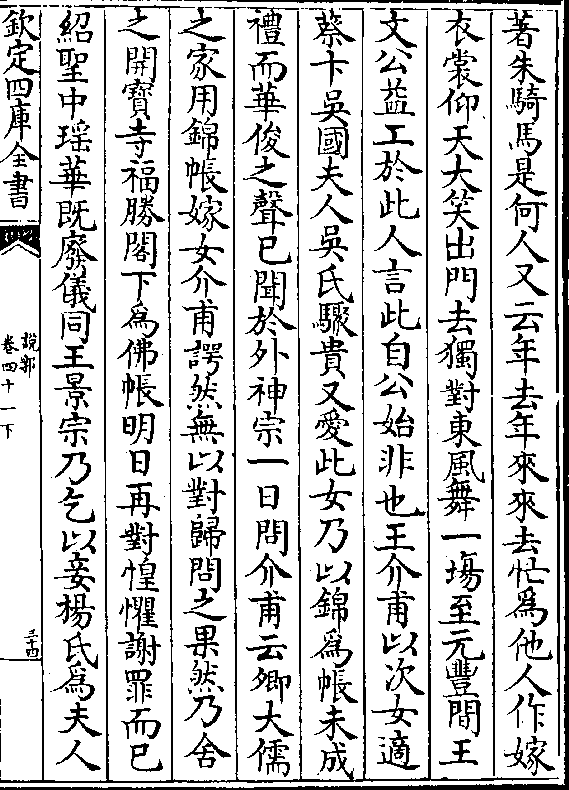 著朱騎馬是何人又云年去年來來去忙為他人作嫁
衣裳仰天大笑出門去獨對東風舞一塲至元豐間王
文公益工於此人言此自公始非也王介甫以次女適
蔡卞吳國夫人吳氏驟貴又愛此女乃以錦為帳未成
禮而華俊之聲已聞於外神宗一日問介甫云卿大儒
之家用錦帳嫁女介甫諤然無以對歸問之果然乃舍
之開寶寺福勝閣下為佛帳明日再對惶懼謝罪而已
紹聖中瑶華既廢儀同王景宗乃乞以妾楊氏為夫人
欽定四庫全書
說郛
卷四十一下
三十四